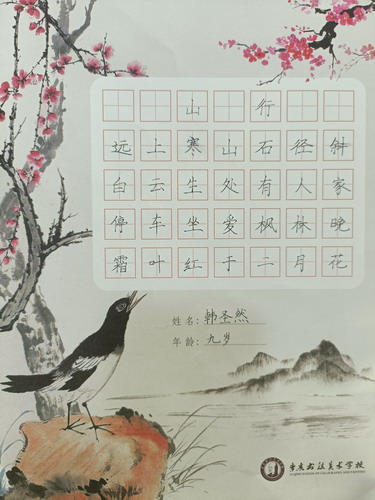 山行
远上寒山石径斜
白云生处有人家
停车坐爱枫林晚
霜叶红于二月花
姓名：韩圣然
年龄：九岁
书法美术学校